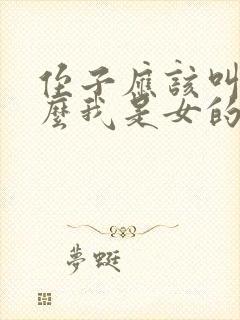 侄子應該叫
麼我是女的
夢蜓